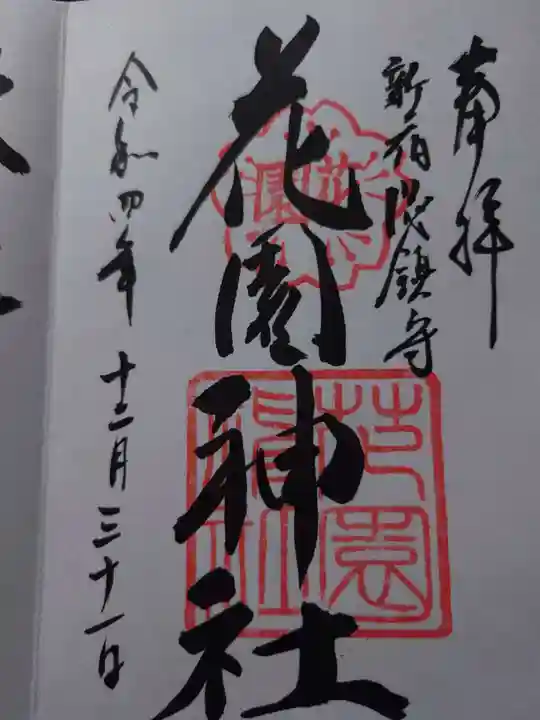 奉拝
新宿総鎮守
花園神社
令和四年 十二月三十一日
花園
花園神社